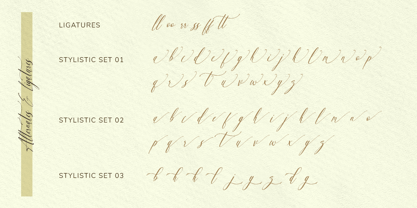 Alternates & Ligatures
LIGATURES
ll oo ss ff tt
STYLISTIC SET 01
a b c d e f g h i j k l m n o p
q r s t u v w x y z
STYLISTIC SET 02
a b c d e f g h i j k l m n o
p q r s t u v w x y z
STYLISTIC SET 03